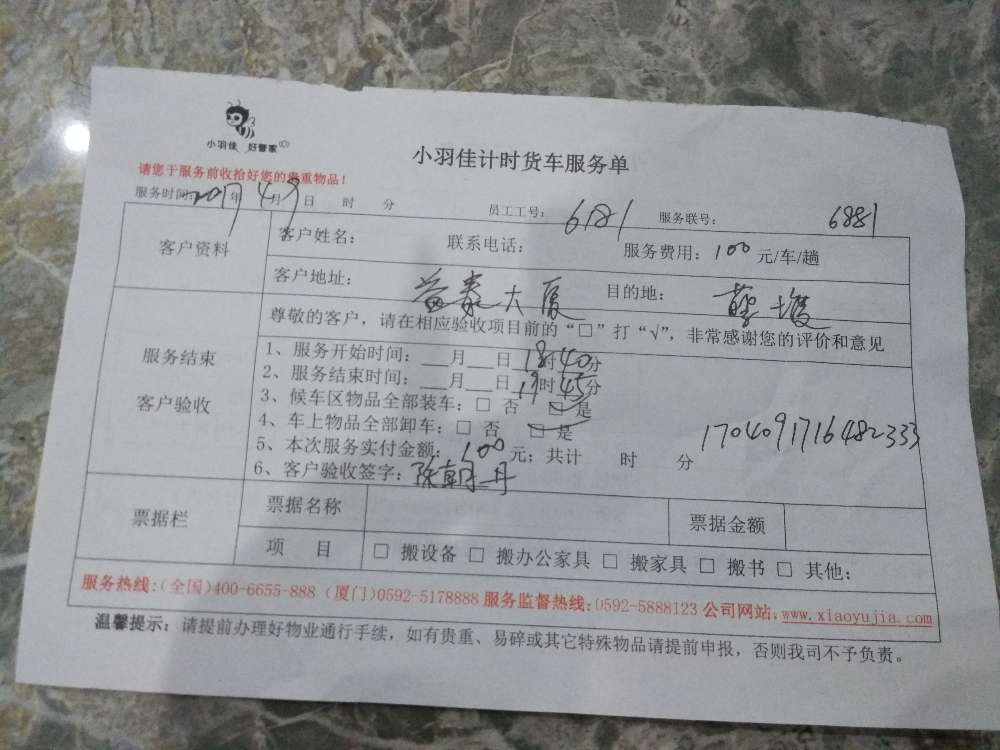 小羽佳 好管家
小羽佳计时货车服务单
请您于服务前收拾好您的贵重物品！
服务时间：2017年4月9日 时 分 员工工号：6181 服务联号：6881
客户资料 客户姓名： 联系电话： 服务费用：100元/车/趟
客户地址：益泰大厦 目的地：薛塘
尊敬的客户，请在相应验收项目前的“□”打“√”，非常感谢您的评价和意见
服务结束
客户验收
1、服务开始时间：___月___日18时40分
2、服务结束时间：___月___日19时45分
3、候车区物品全部装车：□ 否 ☑ 是
4、车上物品全部卸车：□ 否 ☑ 是
5、本次服务实付金额：100元；共计 时 分
1704091716482333
6、客户验收签字：陈朝丹
票据栏 票据名称 票据金额
项 目 □ 搬设备 □ 搬办公家具 □ 搬家具 □ 搬书 □ 其他：
服务热线：（全国）400-6655-888（厦门）0592-5178888 服务监督热线：0592-5888123 公司网站：www.xiaoyujia.com
温馨提示：请提前办理好物业通行手续，如有贵重、易碎或其它特殊物品请提前申报，否则我司不予负责。